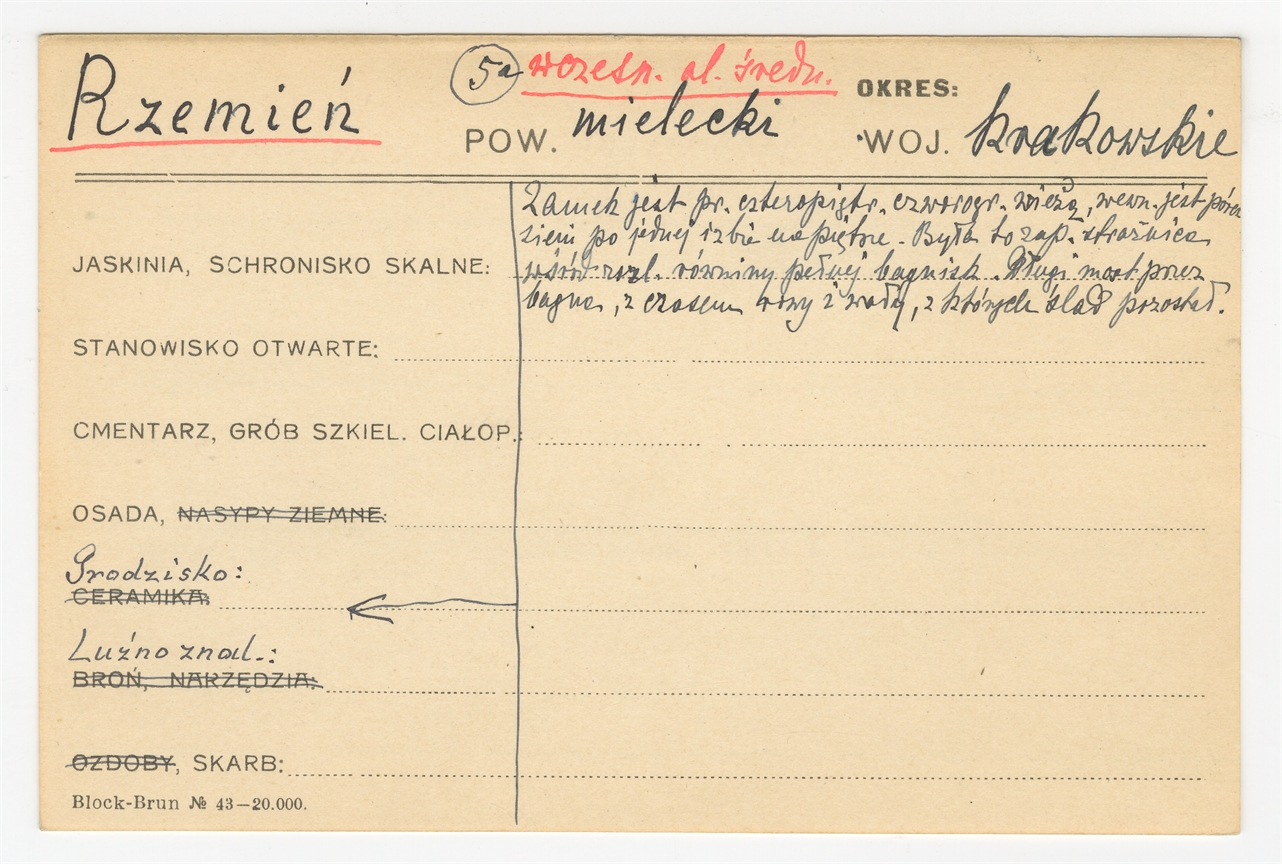 Rzemień
5a wczesn. al. średn. OKRES:
POW. mielecki WOJ. krakowskie
Zamek jest pr. czteropiętr. czworogr. wieżą, wewn. jest prócz
sieni po jednej izbie na piętrze. Była to zap. strażnica
JASKINIA, SCHRONISKO SKALNE: wśród rozl. równiny pełnej bagnisk. Długi most przez
bagna, z czasem rowy z wodą, z których ślad pozostał.
STANOWISKO OTWARTE:
CMENTARZ, GRÓB SZKIEL. CIAŁOP.:
OSADA, NASYPY ZIEMNE:
Grodzisko:
CERAMIKA:
Luźno znal.:
BROŃ, NARZĘDZIA:
OZDOBY, SKARB:
Block-Brun № 43—20.000.